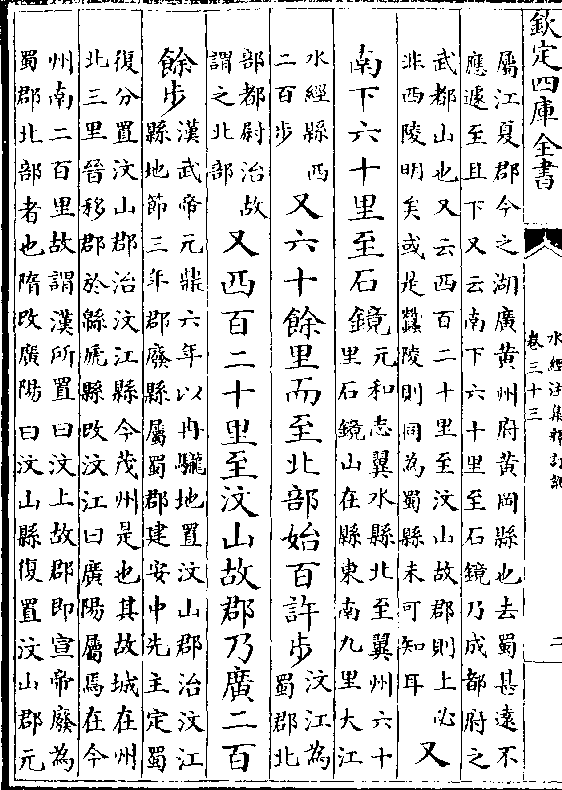 欽定四庫全書
水經注集釋訂訛
卷三十三
二
屬江夏郡今之湖廣黃州府黃岡縣也去蜀甚遠不
應遽至且下又云南下六十里至石鏡乃成都府之
武都山也又云西百二十里至汶山故郡則上必
非西陵明矣或是蠶陵則同為蜀縣未可知耳
又
南下六十里至石鏡
元和志翼水縣北至翼州六十
里石鏡山在縣東南九里大江
水經縣西
二百步
又六十餘里而至北部始百許步
汶江為
蜀郡北
部都尉治故
謂之北部
又西百二十里至汶山故郡乃廣二百
餘步
漢武帝元鼎六年以冉駹地置汶山郡治汶江
縣地節三年郡廢縣屬蜀郡建安中先主定蜀
復分置汶山郡治汶江縣今茂州是也其故城在州
北三里晉移郡於緜虒縣改汶江曰廣陽屬焉在今
州南二百里故謂漢所置曰汶上故郡即宣帝廢為
蜀郡北部者也隋改廣陽曰汶山縣復置汶山郡元